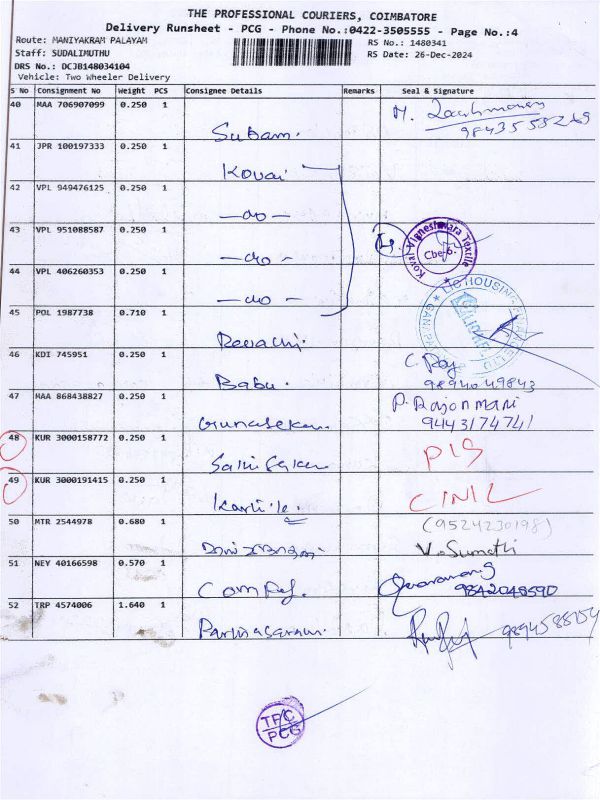 THE PROFESSIONAL COURIERS, COIMBATORE
Delivery Runsheet - PCG - Phone No.:0422-3505555 - Page No.:4
Route: MANIYAKRAM PALAYAM
RS No.: 1480341
Staff: SUDALIMUTHU
RS Date: 26-Dec-2024
DRS No.: DCJB148034104
Vehicle: Two Wheeler Delivery
S No Consignment No Weight PCS Consignee Details Remarks Seal & Signature
40 MAA 706907099 0.250 1
Subam.
41 JPR 100197333 0.250 1
Kovai
42 VPL 949476125 0.250 1
—do—
43 VPL 951088587 0.250 1
—do—
Kovai Vigneshwara Textile
Cbe-6.
44 VPL 406260353 0.250 1
—do—
45 POL 1987738 0.710 1
LIC HOUSING FINANCE LTD
46 KDI 745951 0.250 1
Babu. 9894049843
47 MAA 868438827 0.250 1 P. Rajonmani
Gunasekan 9443174741
48 KUR 3000158772 0.250 1
49 KUR 3000191415 0.250 1
50 MTR 2544978 0.680 1 (9524230198)
V. Sumathi
51 NEY 40166598 0.570 1
9842048590
52 TRP 4574006 1.640 1
TPC
PCG